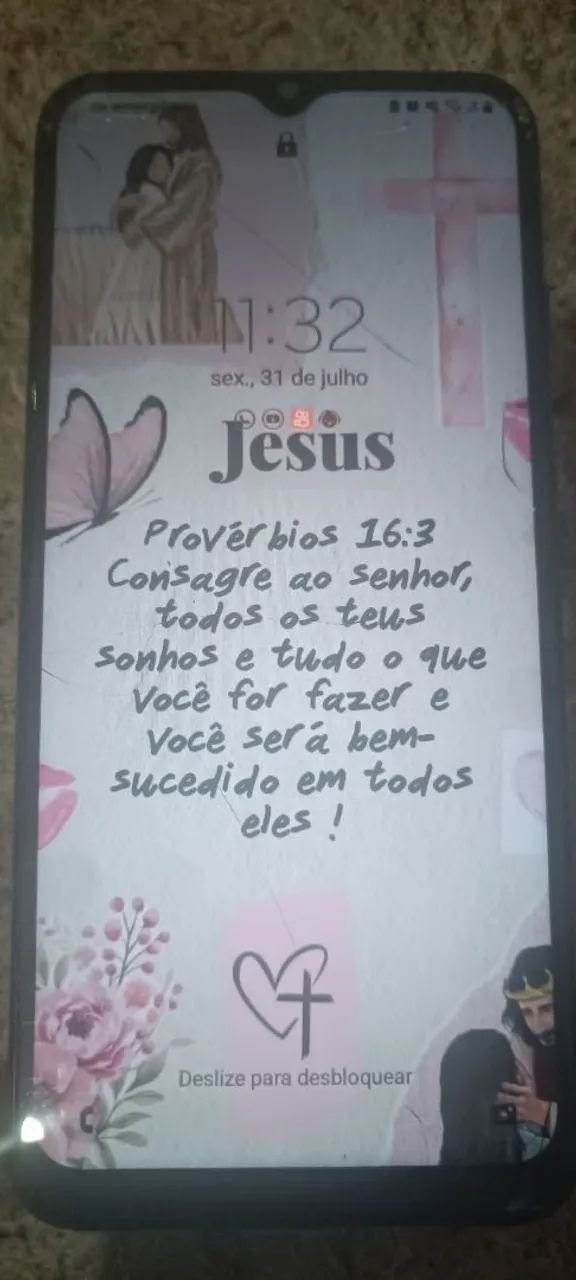 11:32
sex., 31 de julho
Jesus
Provérbios 16:3
Consagre ao senhor,
todos os teus
sonhos e tudo o que
você for fazer e
você será bem-
sucedido em todos
eles !
Deslize para desbloquear